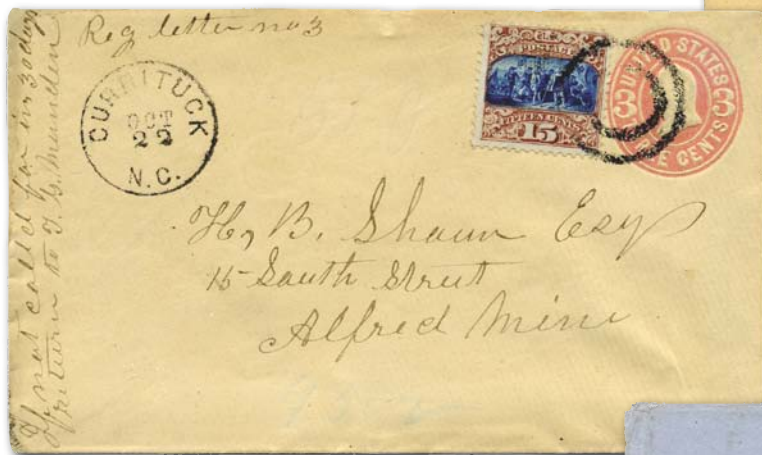 Reg letter no 3
If not called for in 30 days
return to T. G. Munden
CURRITUCK
OCT
22
N.C.
POSTAGE
FIFTEEN CENTS
15
UNITED STATES
3 3
THREE CENTS
H, B. Shaun Esq
15 South Street
Alfred Mine